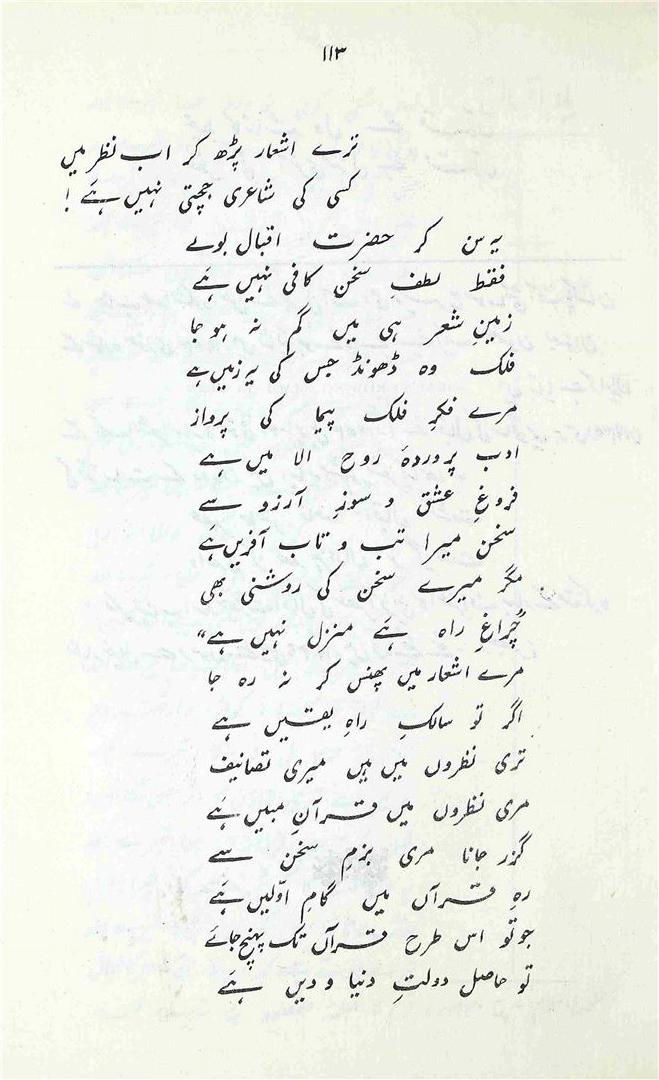 ۱۱۳
ترے اشعار پڑھ کر اب نظر میں
کسی کی شاعری جچتی نہیں ہے !
یہ سن کر حضرت اقبال بولے
فقط لطف سخن کافی نہیں ہے
زمینِ شعر ہی میں گم نہ ہو جا
فلک وہ ڈھونڈ جس کی یہ زمیں ہے
مرے فکرِ فلک پیما کی پرواز
ادب پروردۂ روح الا میں ہے
فروغِ عشق و سوزِ آرزو سے
سخن میرا تب و تاب آفریں ہے
مگر میرے سخن کی روشنی بھی
"چراغِ راہ ہے منزل نہیں ہے"
مرے اشعار میں پھنس کر نہ رہ جا
اگر تو سالکِ راہِ یقیں ہے
تری نظروں میں ہیں میری تصانیف
مری نظروں میں قرآنِ مبیں ہے
گزر جانا مری بزمِ سخن سے
رہِ قرآں میں گامِ اوّلیں ہے
جو تو اس طرح قرآں تک پہنچ جائے
تو حاصل دولتِ دنیا و دیں ہے